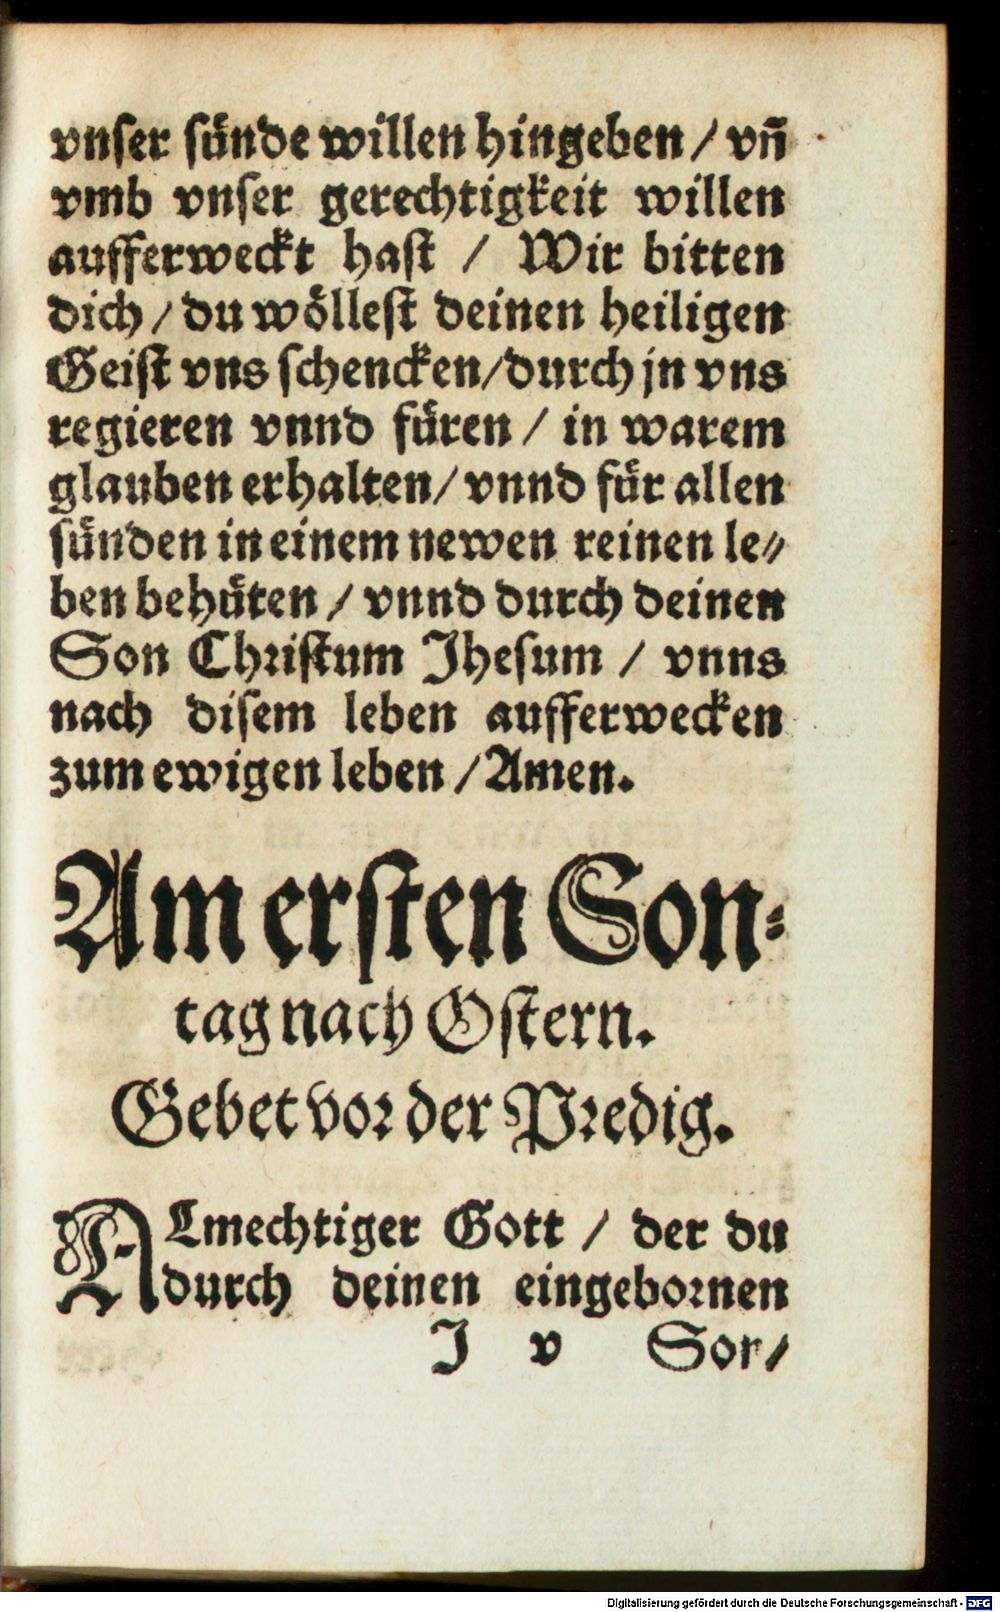 vnser sünde willen hingeben / vn̄
vmb vnser gerechtigkeit willen
aufferweckt hast / Wir bitten
dich / du wöllest deinen heiligen
Geist vns schencken / durch jn vns
regieren vnnd füren / in warem
glauben erhalten / vnnd für allen
sünden in einem newen reinen le⸗
ben behüten / vnnd durch deinen
Son Christum Jhesum / vnns
nach disem leben aufferwecken
zum ewigen leben / Amen.
Am ersten Son⸗
tag nach Ostern.
Gebet vor der Predig.
ALmechtiger Gott / der du
durch deinen eingebornen
J v Son/
Digitalisierung gefördert durch die Deutsche Forschungsgemeinschaft - DFG